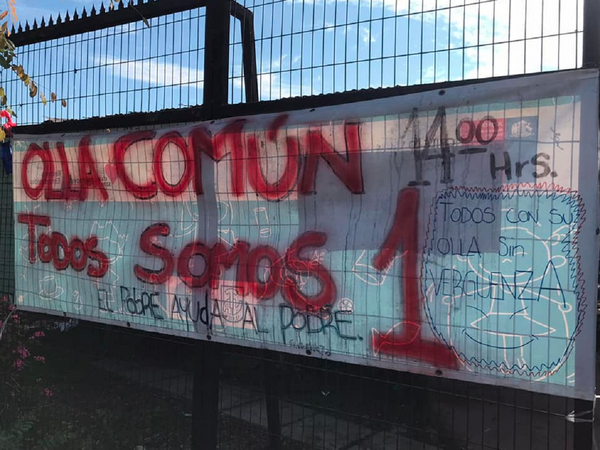 OLLA COMÚN 14 00 Hrs.
Todos SOMOS 1
EL PObRE AYUdA AL PObRE.
TODOS CON SU
OLLA Sin
VERGÜENZA